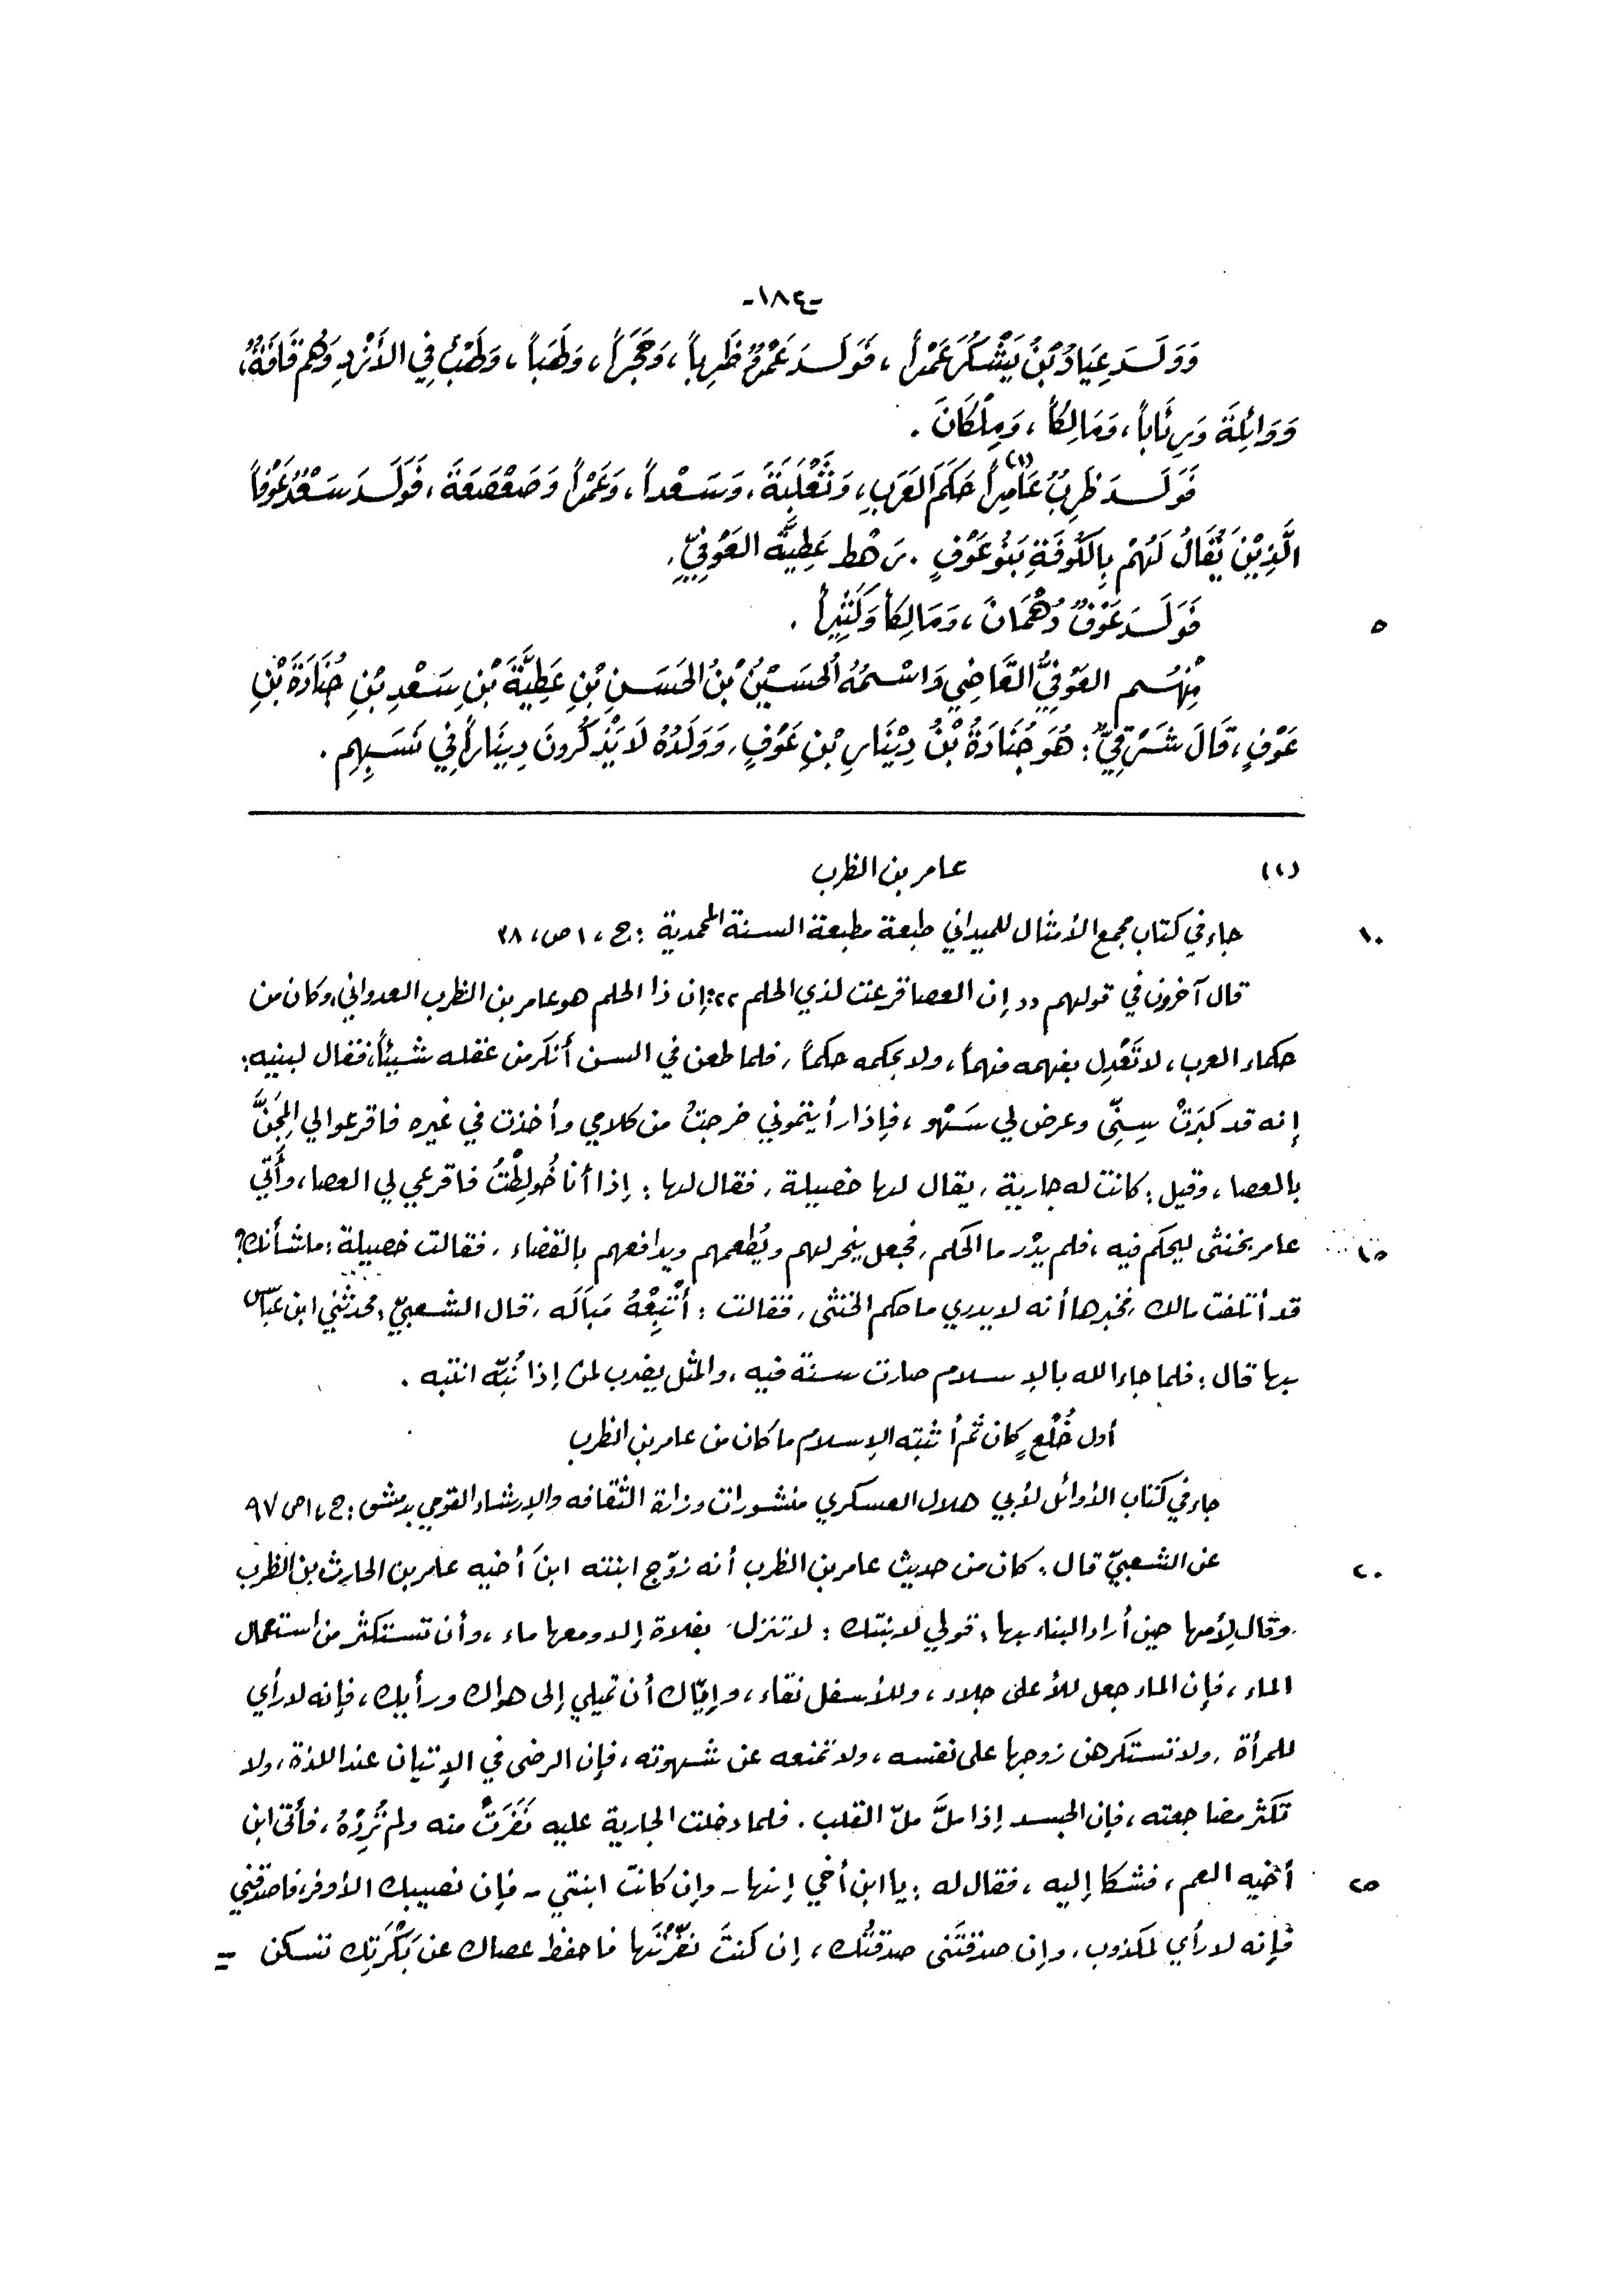 -١٨٤-
وَوَلَـدَ عِيَاذُ بْنُ يَشْكُرَ عَمْراً ، فَوَلَـدَ عَمْرٌو ظَرِباً ، وَحَجَراً ، وَطَهْباً ، وَطَهْبٌ فِي الأَزْدِ وَهُم قَافَةٌ ،
وَوَائِلَةَ وَرِئَاباً ، وَمَالِكاً ، وَمِلْكَانَ .
فَوَلَـدَ ظَرِبٌ عَامِراً (١) حَكَمَ العَرَبِ ، وَثَعْلَبَةَ ، وَسَعْداً ، وَعَمْراً وَصَعْصَعَةَ ، فَوَلَـدَ سَعْدٌ عَوْفاً
الَّذِيْنَ يُقَالُ لَهُمْ بِالكُوفَةِ بَنُو عَوْفٍ . رَهْط عَطِيَّةَ العَوْفِيِّ .
٥ فَوَلَـدَ عَوْفٌ دُهْمَانَ ، وَمَالِكاً وَكَثِيْراً .
مِنْهُـم العَوْفِيُّ القَاضِي وَاسْـمُهُ الحُسَـيْنُ بْنُ الحَسَـنِ بْنِ عَطِيَّةَ بْنِ سَـعْدِ بْنِ جُنَادَةَ بْنِ
عَوْفٍ ، قَالَ شَـرْقِيٌّ : هُوَ جُنَادَةُ بْنُ دِيْنَارِ بْنِ عَوْفٍ ، وَوَلَدُهُ لَا يَذْكُرُونَ دِينَاراً فِي نَسَـبِهِم .
(١) عامر بن الظرب
١٠ جاء في كتاب مجمع الأمثال للميداني طبعة مطبعة السنة المحمدية : ج ، ١ ص ، ٣٨
قال آخرون في قولهم ,, إن العصا قرعت لذي الحلم ,, : إن ذا الحلم هو عامر بن الظرب العدواني ، وكان من
حكماء العرب ، لا تَعْدِل بفهمه فهماً ، ولا بحكمه حكماً ، فلما طعن في السن أنكر من عقله شيئاً ، فقال لبنيه :
إنه قد كَبِرَتْ سِنِّي وعرض لي سَهْو ، فإذا رأيتموني خرجتُ من كلامي وأخذت في غيره فاقرعوا لي المِجَنَّ
بالعصا ، وقيل : كانت له جارية ، يقال لها خصيلة ، فقال لها : إذا أنا خُولِطْتُ فاقرعي لي العصا ، وأُتي
١٥ عامر بخنثى ليحكم فيه ، فلم يدْر ما الحكم ، فجعل ينحر لهم ويُطعمهم ويدافعهم بالقضاء ، فقالت خصيلة : ما شأنك ؟
قد أتلفت مالك ، فخبرها أنه لا يدري ما حكم الخنثى ، فقالت : أَتْبِعْهُ مَبَالَه ، قال الشعبيّ : فحدثني ابن عبّاس
بها قال : فلما جاء الله بالإسلام صارت سنة فيه ، والمثل يضرب لمن إذا نُبِّه انتبه .
أول خُلْعٍ كان ثم أثبته الإسلام ما كان من عامر بن الظرب
جاء في كتاب الأوائل لأبي هلال العسكري منشورات وزارة الثقافه والإرشاد القومي بدمشق : ج ، ١ ص ٩٧
٢٠ عن الشعبيّ قال : كان من حديث عامر بن الظرب أنه زوّج ابنته ابنَ أخيه عامر بن الحارث بن الظرب
وقال لِأمها حين أراد البناء بها : قولي لابنتك : لا تنزل بفلاة إلا ومعها ماء ، وأن تستكثر من استعمال
الماء ، فإن الماء جعل للأعلى جلاء ، وللأسفل نقاء ، وإيّاك أن تميلي إلى هواك ورأيك ، فإنه لا رأي
للمرأة ، ولا تستكرهن زوجها على نفسه ، ولا تمنعه عن شهوته ، فإن الرضى في الإتيان عند اللذة ، ولا
تكثر مضاجعته ، فإن الجسد إذا ملَّ ملّ القلب . فلما دخلت الجارية عليه نَفَرَتْ منه ولم تُرِدْهُ ، فأتى ابن
٢٥ أخيه العم ، فشكا إليه ، فقال له : يا ابن أخي إنها - وإن كانت ابنتي - فإن نصيبك الأوفر ، فاصدقني
فإنه لا رأي لمكذوب ، وإن صدقتَني صدقتُك ، إن كنتَ نفّرْتَها فاحفظ عصاك عن بَكْرَتِك تسكن =